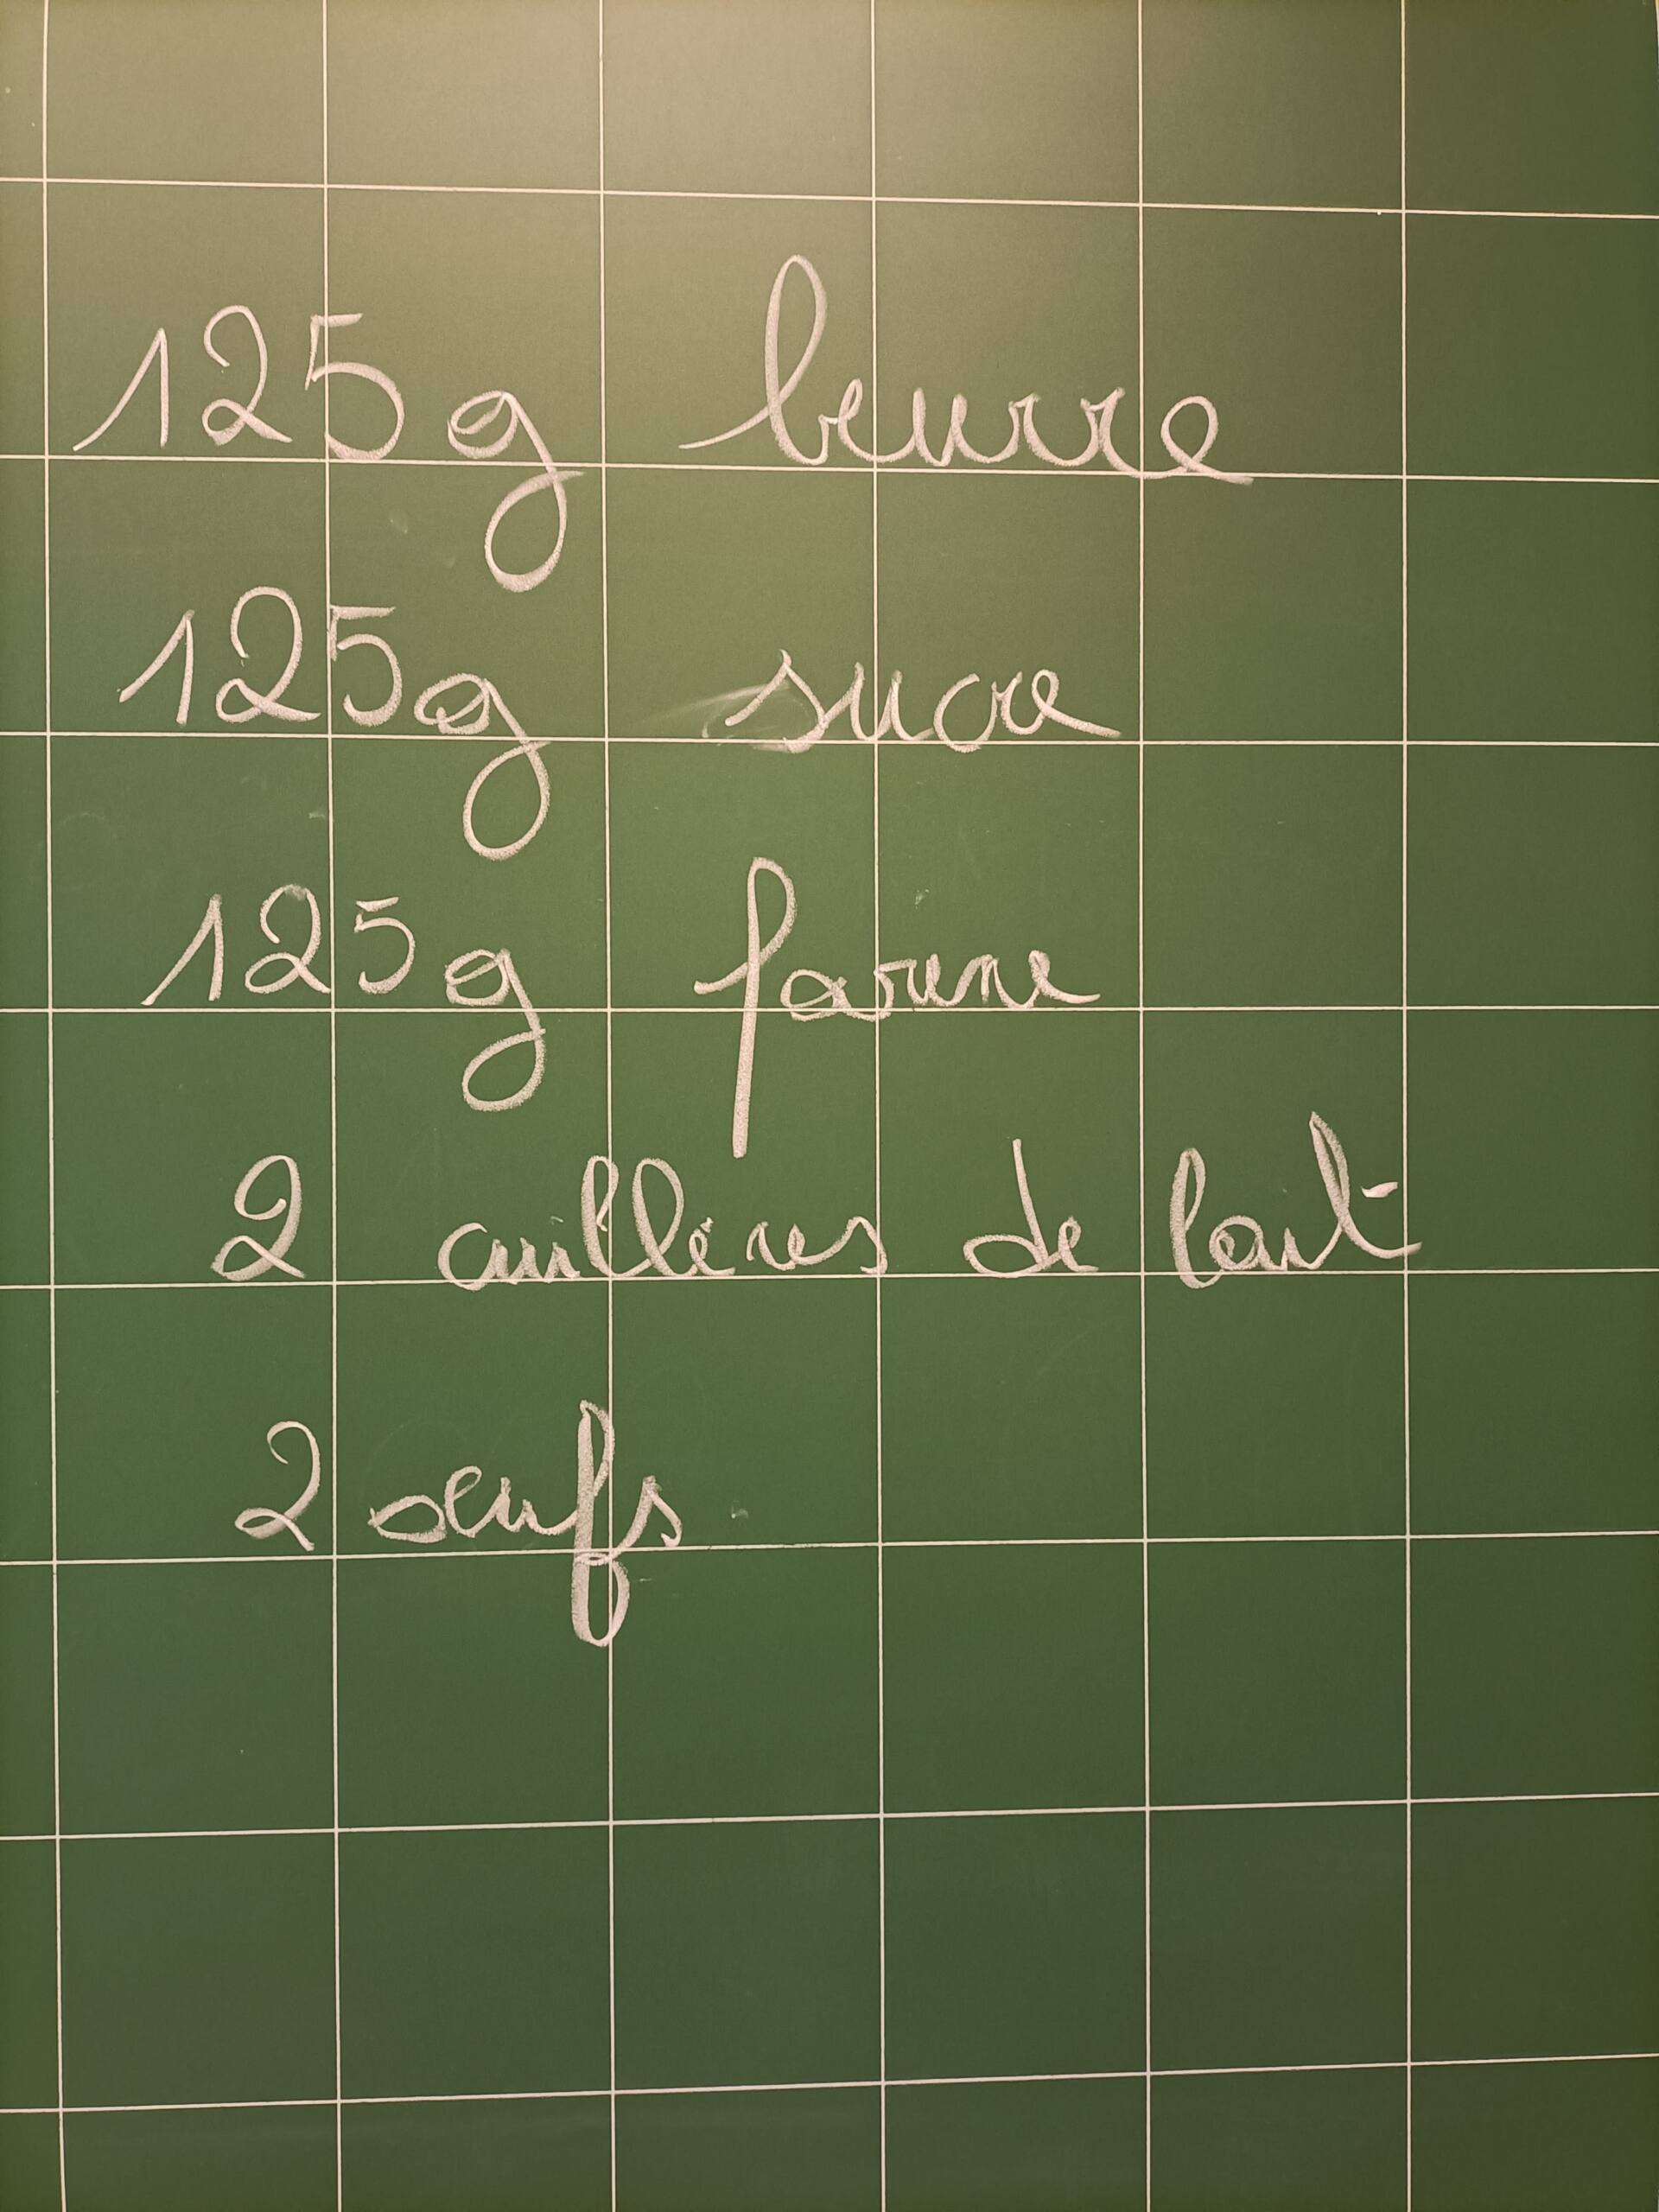 125g beurre
125g sucre
125g farine
2 cuillères de lait
2 oeufs